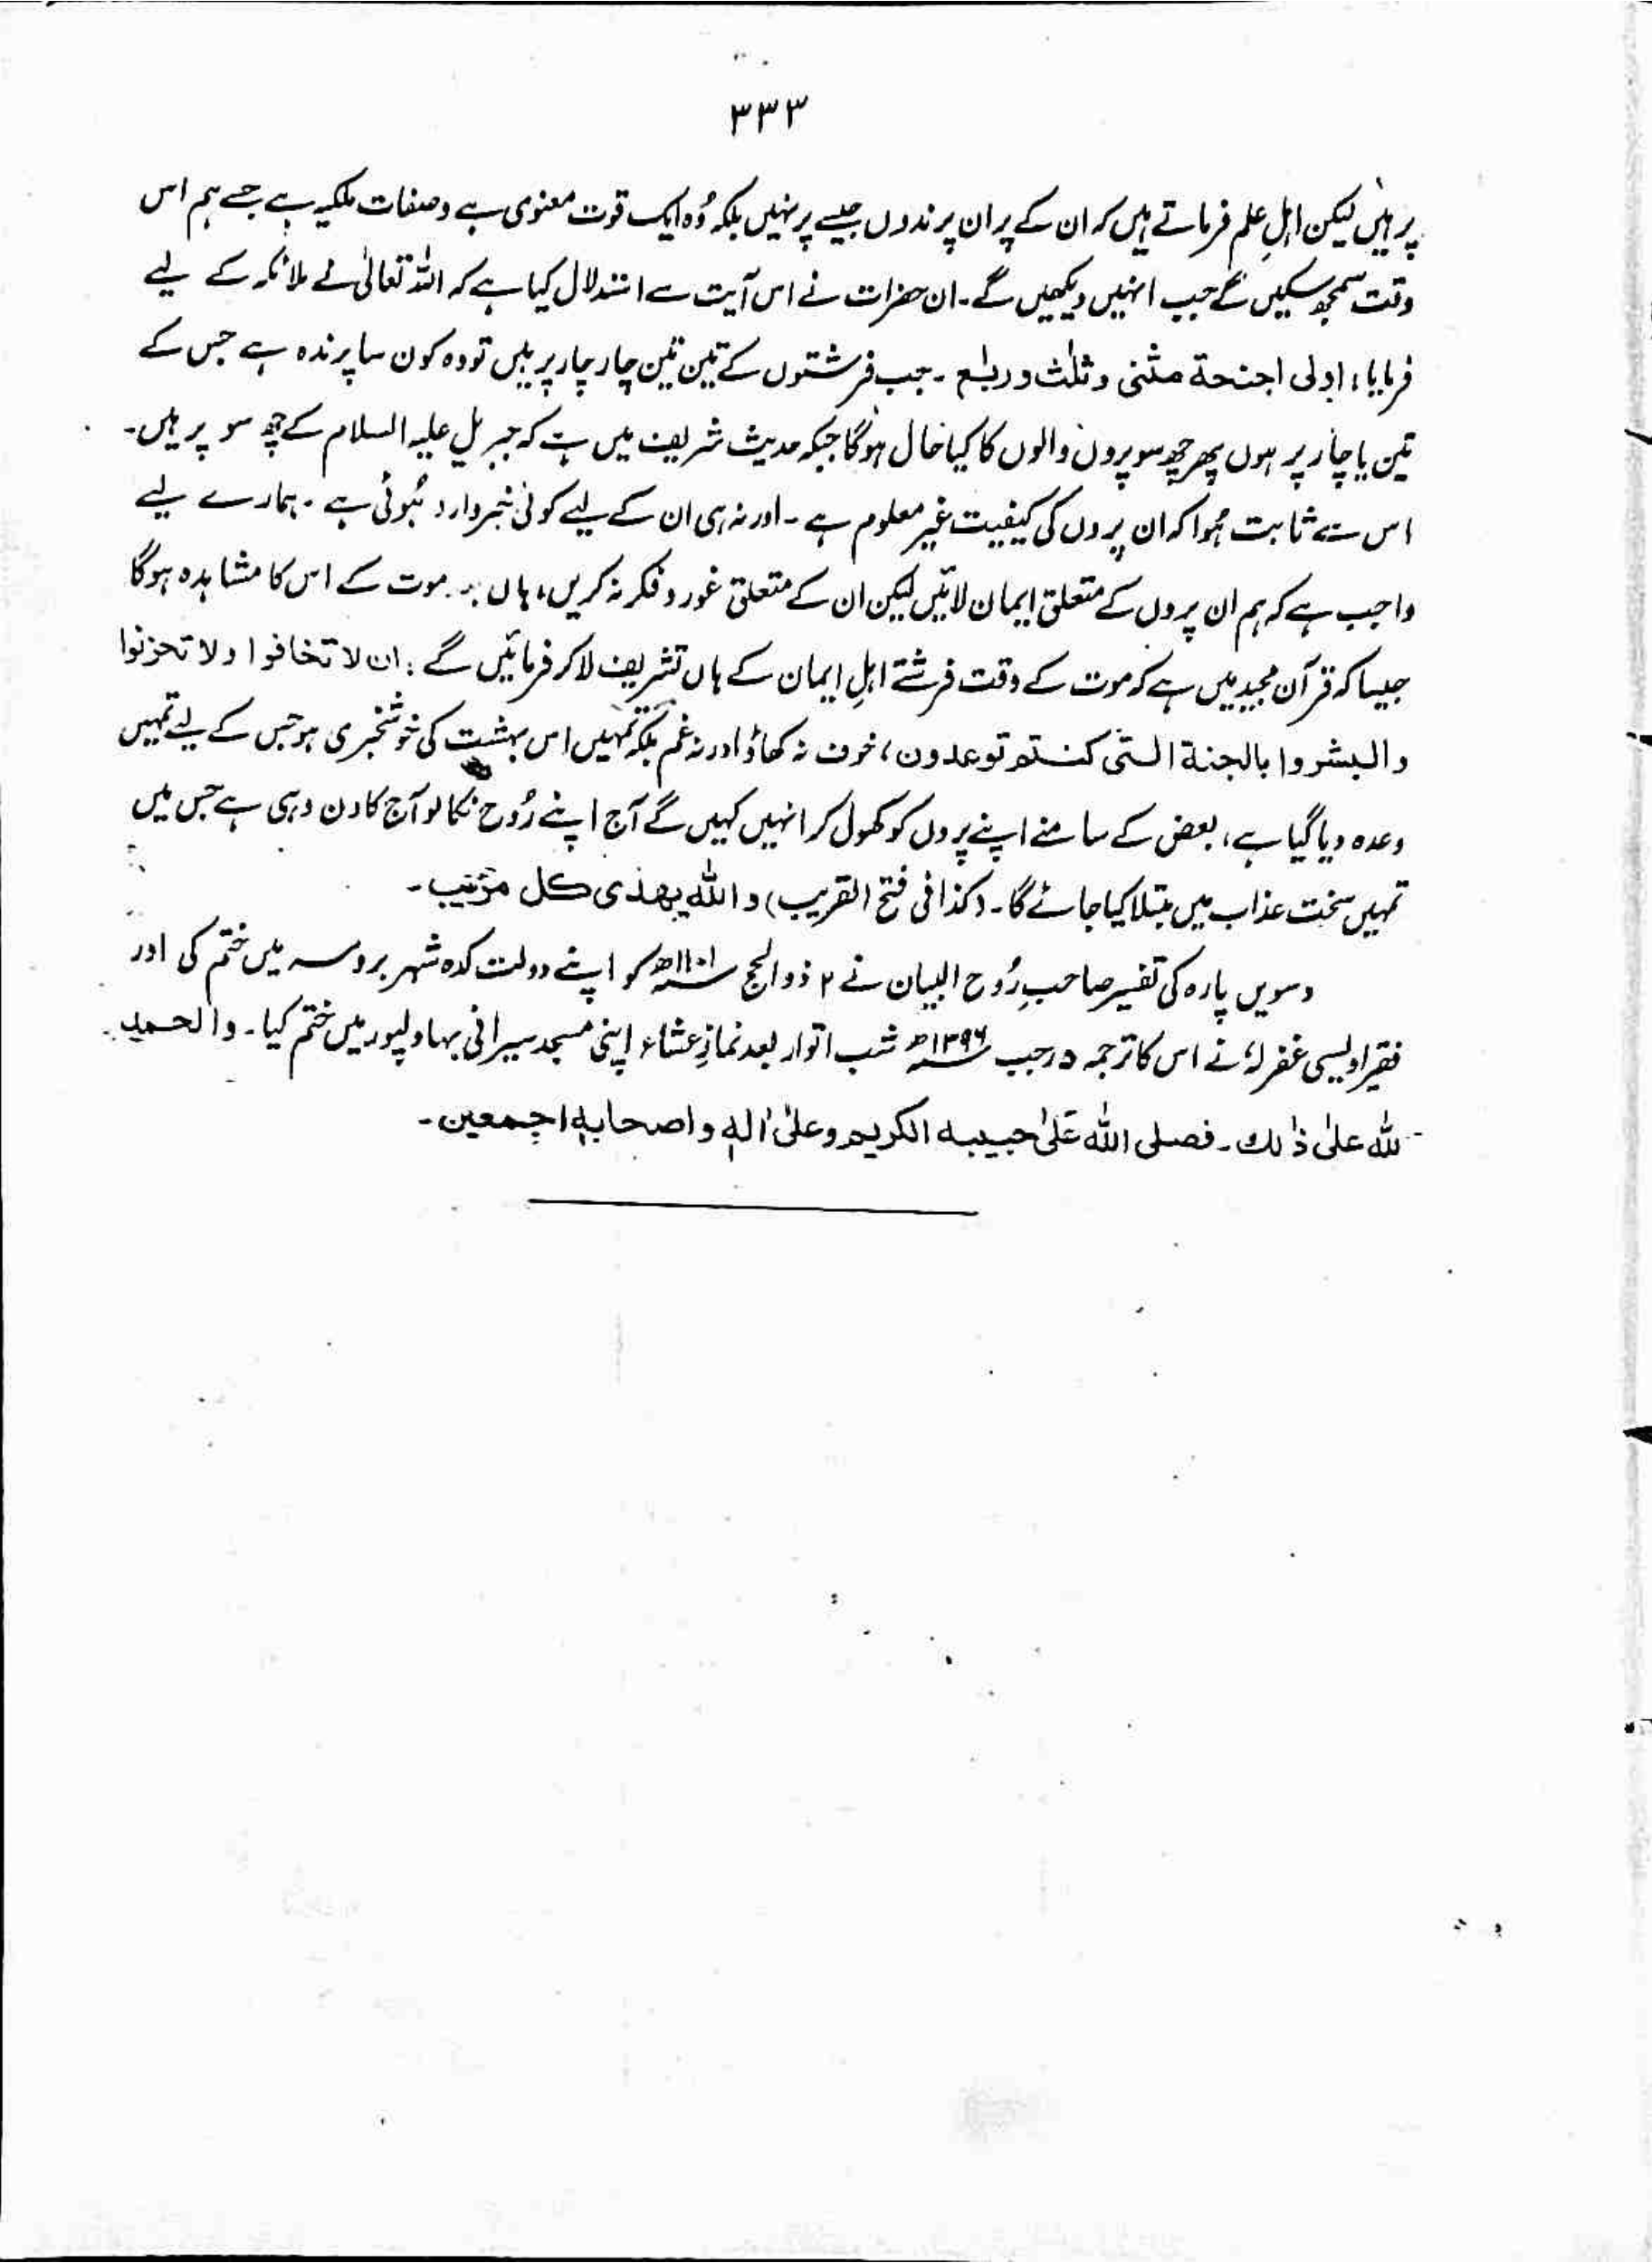 ۳۳۳
پر ہیں لیکن اہلِ علم فرماتے ہیں کہ ان کے پر ان پرندوں جیسے پر نہیں بلکہ وُہ ایک قوت معنوی ہے و صفات ملکیہ ہے جسے ہم اس
وقت سمجھ سکیں گے جب انہیں دیکھیں گے۔ ان حضرات نے اس آیت سے استدلال کیا ہے کہ اللہ تعالیٰ نے ملائکہ کے لیے
فرمایا: اولی اجنحة مثنٰی و ثلٰث و ربٰع ۔ جب فرشتوں کے تین تین چار چار پر ہیں تو وہ کون سا پرندہ ہے جس کے
تین یا چار پر ہوں پھر چھ سو پروں والوں کا کیا حال ہوگا جبکہ حدیث شریف میں ہے کہ جبریل علیہ السلام کے چھ سو پر ہیں۔
اس سے ثابت ہُوا کہ ان پروں کی کیفیت غیر معلوم ہے ۔ اور نہ ہی ان کے لیے کوئی خبر وارد ہُوئی ہے ۔ ہمارے لیے
واجب ہے کہ ہم ان پروں کے متعلق ایمان لائیں لیکن ان کے متعلق غور و فکر نہ کریں، ہاں موت کے اس کا مشاہدہ ہوگا
جیسا کہ قرآن مجید میں ہے کہ موت کے وقت فرشتے اہلِ ایمان کے ہاں تشریف لاکر فرمائیں گے : ان لا تخافوا ولا تحزنوا
والبشروا بالجنة التی کنتم توعدون، خوف نہ کھاؤ اور نہ غم بلکہ تمہیں اس بہشت کی خوشخبری ہو جس کے لیے تمہیں
وعدہ دیا گیا ہے، بعض کے سامنے اپنے پروں کو کھول کر انہیں کہیں گے آج اپنے رُوح نکالو آج کا دن وہی ہے جس میں
تمہیں سخت عذاب میں مبتلا کیا جائے گا۔ (کذا فی فتح القریب) و اللہ یھدی کل منیب ۔
دسویں پارہ کی تفسیر صاحبِ رُوح البیان نے ۲ ذوالحج ۱۱۰۱ھ کو اپنے دولت کدہ شہر بروسہ میں ختم کی اور
فقیر اویسی غفرلہٗ نے اس کا ترجمہ ۵ رجب ۱۳۹۶ھ شب اتوار بعد نمازِ عشاء اپنی مسجد سیرانی بہاولپور میں ختم کیا۔ والحمد
للہ علیٰ ذٰلک۔ فصلی اللہ علیٰ حبیبہ الکریم وعلیٰ اٰلہٖ واصحابہٖ اجمعین۔